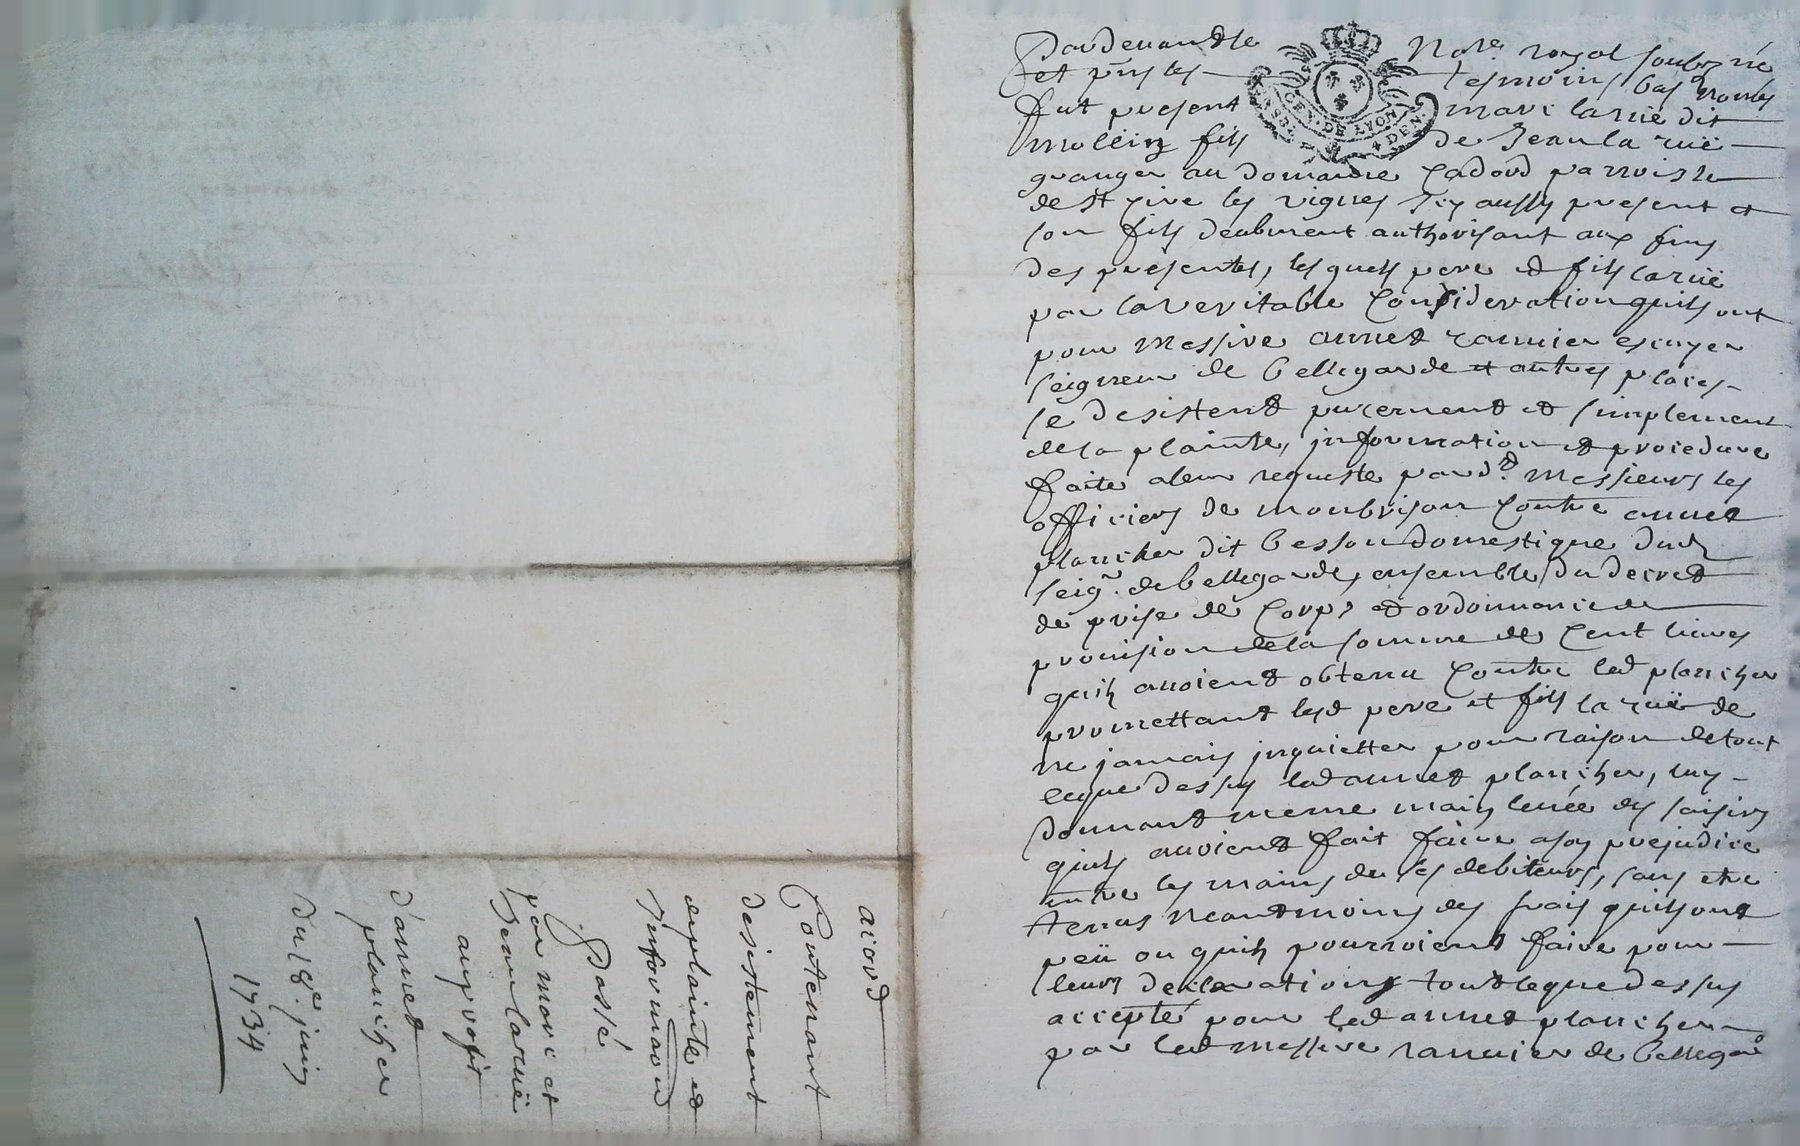 Pardevant le Not.re royal soubz né
et pnts les tesmoins bas nommés
fut present marc la ruë dit
mollein fils de Jean la ruë
granger au domaine Cadord parroisse
de St Cire les vignes icy aussy present et
son fils deubment authorisant aux fins
des presentes, lesquels pere et fils laruë
par la veritable Consideration quils ont
pour Messire annet ramier escuyer
seigneur de bellegarde et autres places
se desistent purement et simplement
de la plainte, information et procedure
faite a leur requeste pard.t Messieurs les
officiers de montbrison Contre annet
plancher dit besson domestique dud
seig.r de bellegarde, ensemble du decret
de prise de Corps et ordonnance de
provision de la somme de Cent livres
quils avoient obtenu Contre led plancher
promettant lesd pere et fils la ruë de
ne jamais inquietter pour raison de tout
ceque dessus led annet plancher, luy
donnant meme main levée des saisies
quils avoient fait faire a son prejudice
entre les mains de ses debiteurs, sans etre
tenus neantmoins des frais quils ont
peü ou quils pourroient faire pour
leurs declarations tout leque dessus
accepté pour led annet plancher
par led messire ramier de bellegard
GEN. DE LYON
acord
Contenant
desistement
de plainte et
informaon
Passé
par marc et
Jean laruë
au profit
d'annet
plancher
Du 18.e juin
1734